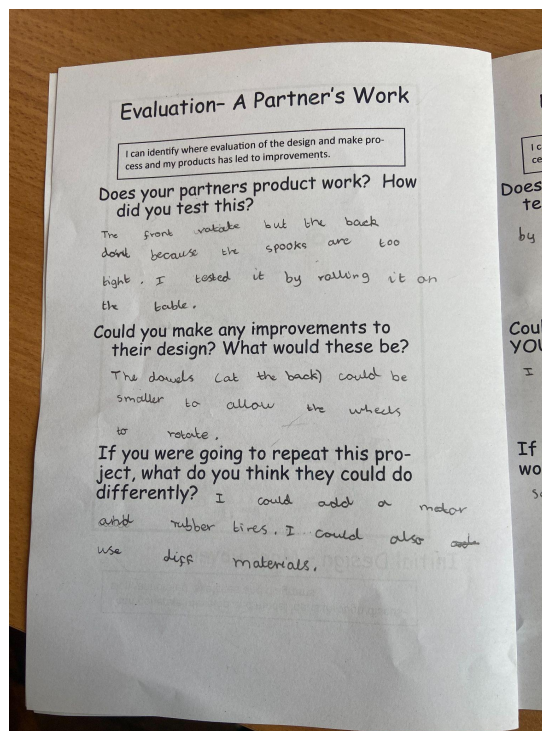 Evaluation– A Partner's Work
I can identify where evaluation of the design and make pro-
cess and my products has led to improvements.
Does your partners product work? How
did you test this?
The front rotate but the back
dont because the spooks are too
tight. I tested it by rolling it on
the table.
Could you make any improvements to
their design? What would these be?
The dowels (at the back) could be
smaller to allow the wheels
to rotate.
If you were going to repeat this pro-
ject, what do you think they could do
differently? I could add a motor
and rubber tires. I could also
use diff materials.
I c
ce
Does
te
by
Coul
YOU
I
If
wo